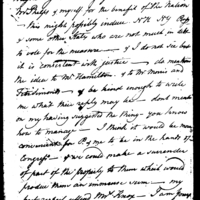 for Phelps & myself for the benefit of the Nation
- This might possibly induce N H N Y
& some other States who are not much in debt
to vote for the measure - & I do not see but
it is consistent with justice - do mention
the idea to Mr Hamilton - & to Mr Morris and
Fitzsimons - & be kind enough to write
me what their reply may be - dont mention
my having suggested the thing - you know
how to manage - I think it would be more
convenient for P & me to be in the hands of
Congress - & we could make a surrender
of part of the property to them which would
produce them an immense sum - my
Mr Henry - I am Yours